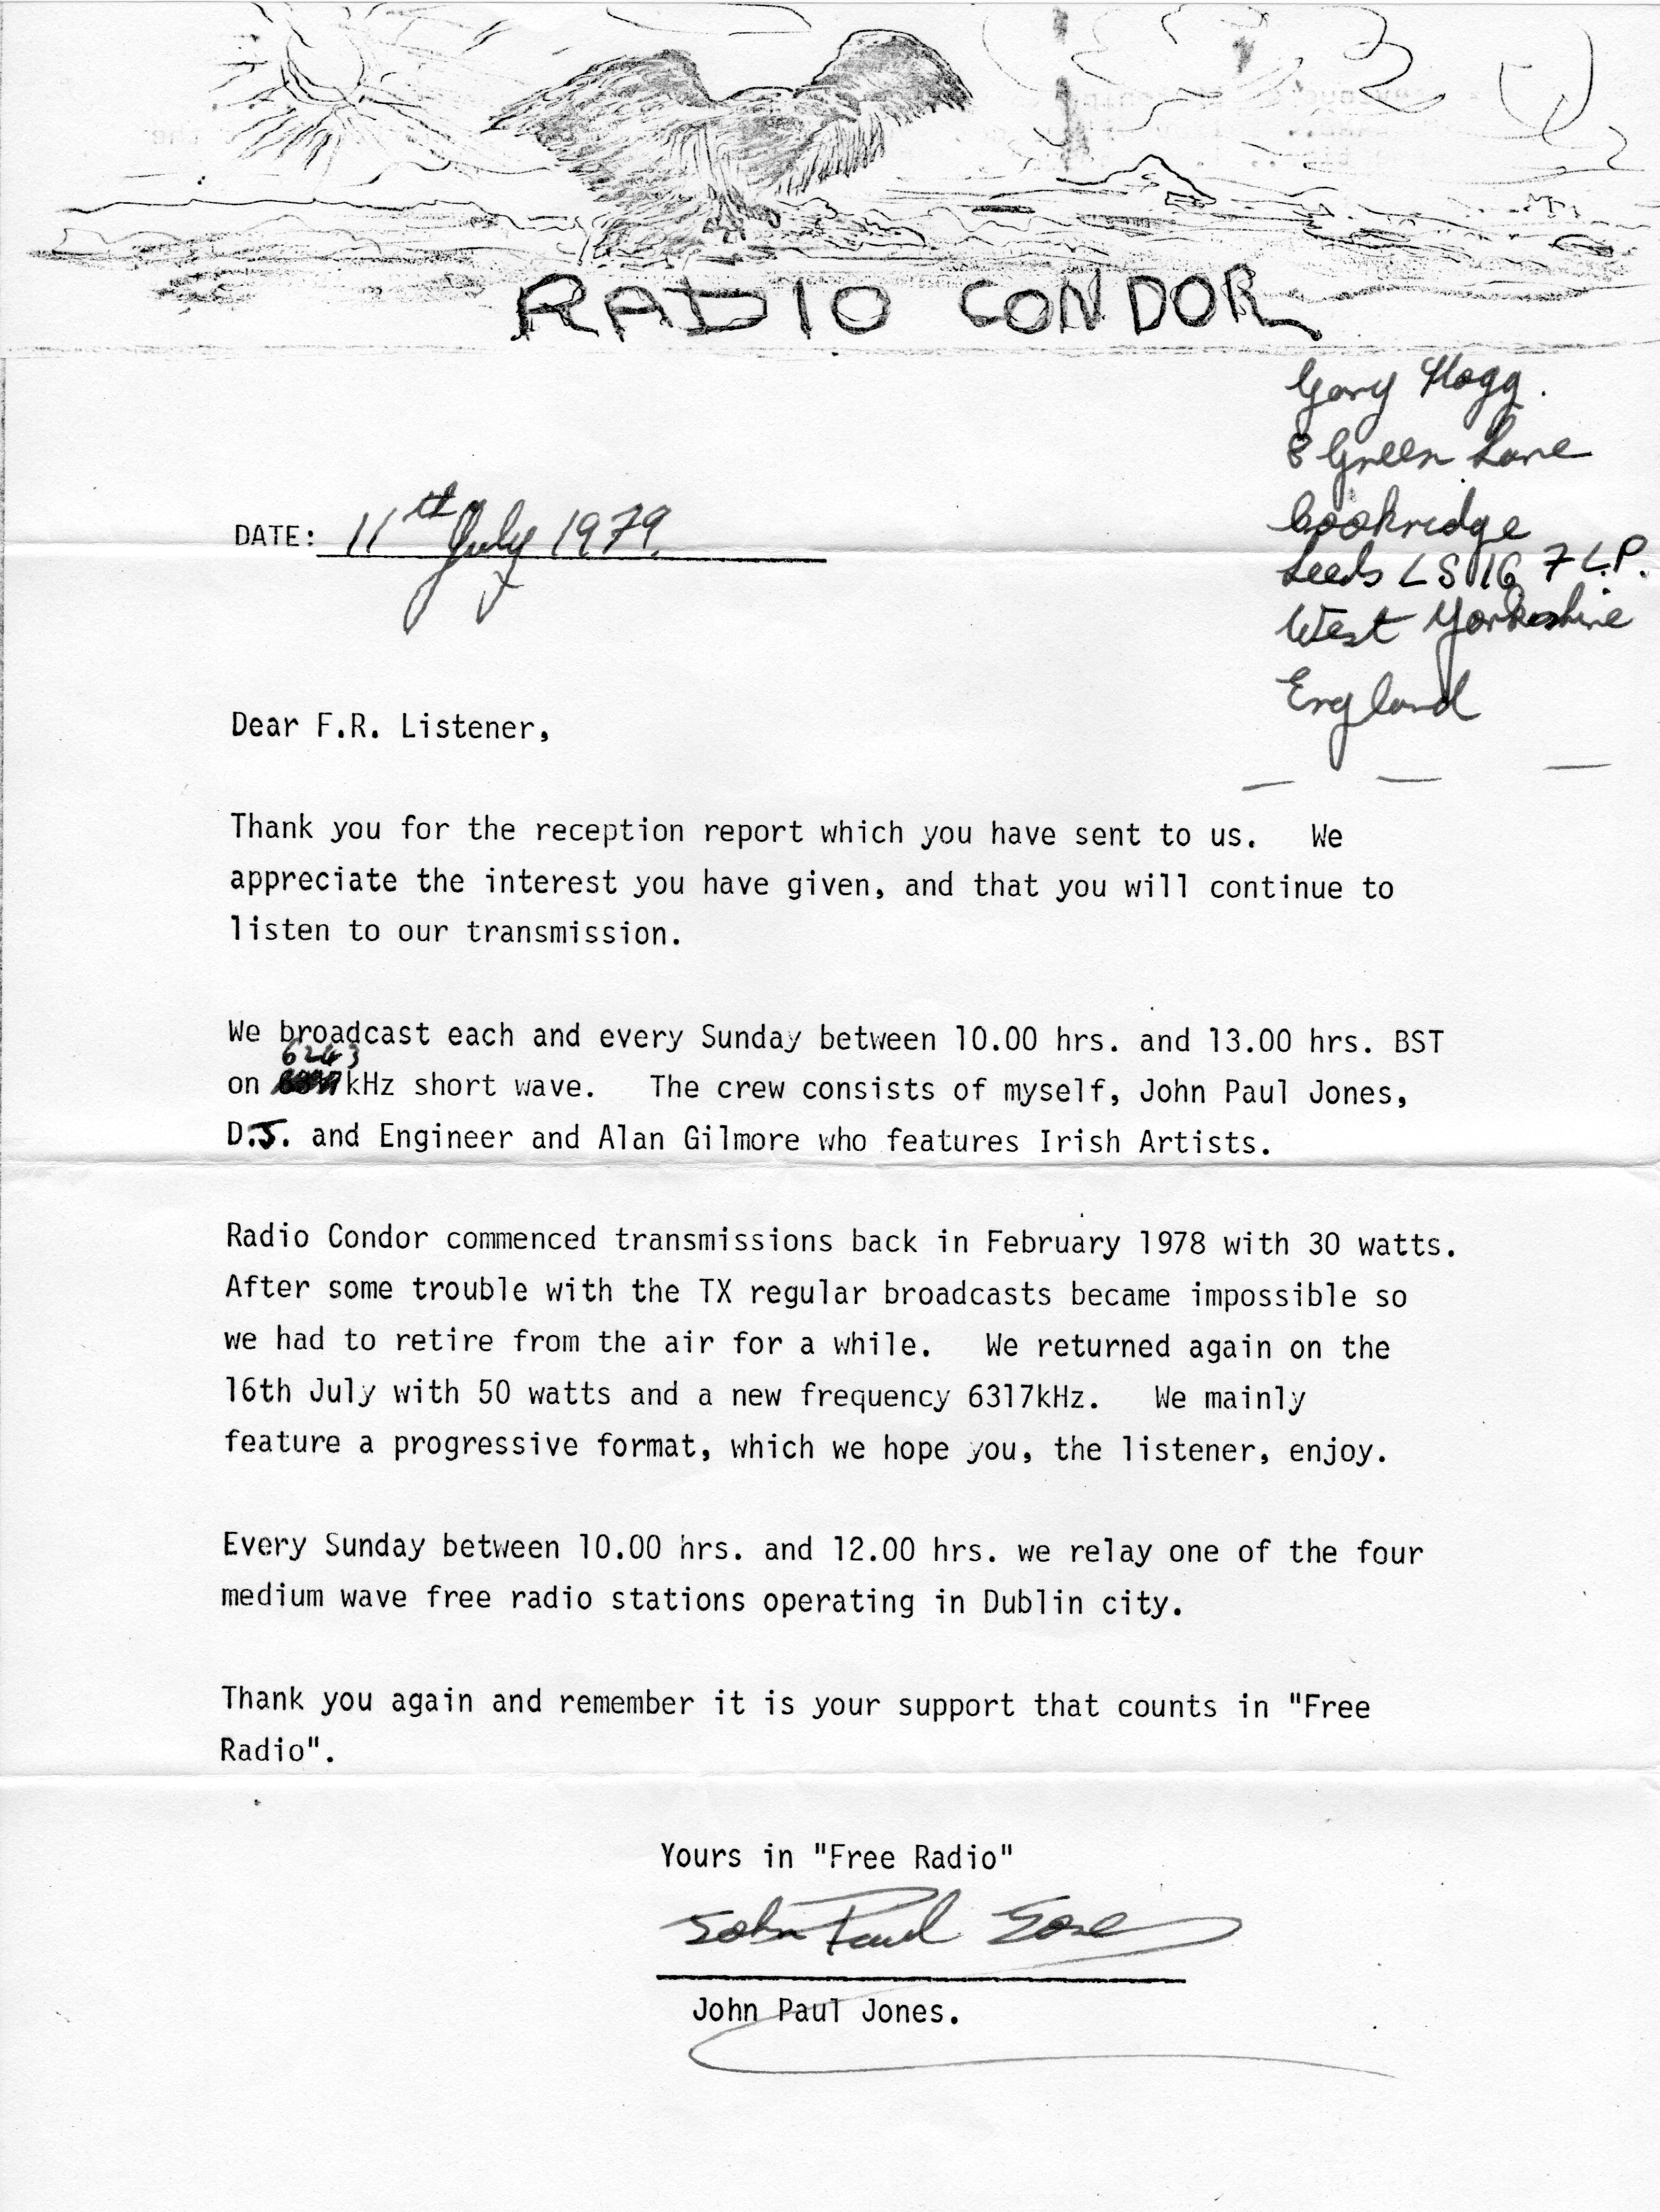 RADIO CONDOR
Gary Hogg.
8 Green Lane
Cookridge
Leeds LS16 7LP.
West Yorkshire
England
DATE: 11th July 1979.
Dear F.R. Listener,
Thank you for the reception report which you have sent to us. We
appreciate the interest you have given, and that you will continue to
listen to our transmission.
We broadcast each and every Sunday between 10.00 hrs. and 13.00 hrs. BST
6243
on kHz short wave. The crew consists of myself, John Paul Jones,
D.J. and Engineer and Alan Gilmore who features Irish Artists.
Radio Condor commenced transmissions back in February 1978 with 30 watts.
After some trouble with the TX regular broadcasts became impossible so
we had to retire from the air for a while. We returned again on the
16th July with 50 watts and a new frequency 6317kHz. We mainly
feature a progressive format, which we hope you, the listener, enjoy.
Every Sunday between 10.00 hrs. and 12.00 hrs. we relay one of the four
medium wave free radio stations operating in Dublin city.
Thank you again and remember it is your support that counts in "Free
Radio".
Yours in "Free Radio"
John Paul Jones
John Paul Jones.